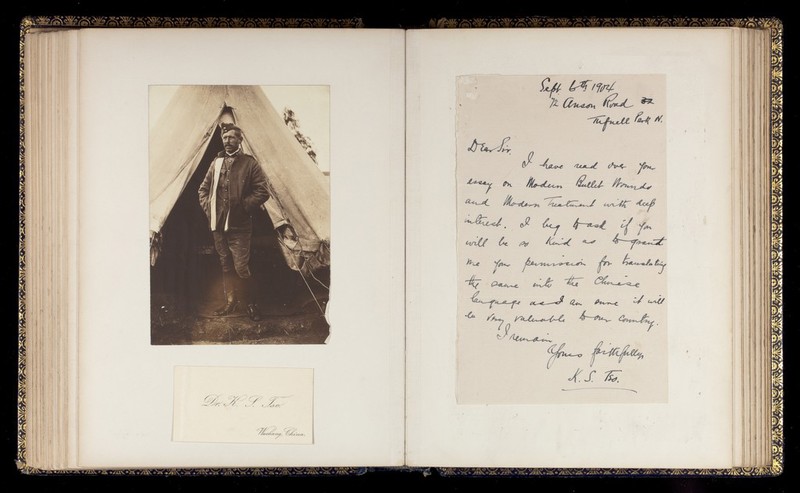 Dr. K. S. Tso
China.
Sept 6th 1904
72 Anson Road
Tufnell Park N.
Dear Sir,
I have read over your
essay on Modern Bullet Wounds
and Modern Treatment with deep
interest. I beg to ask if you
will be so kind as to grant
me your permission for translating
the same into the Chinese
language as I am sure it will
be very valuable to our country.
I remain
Yours faithfully
K. S. Tso.